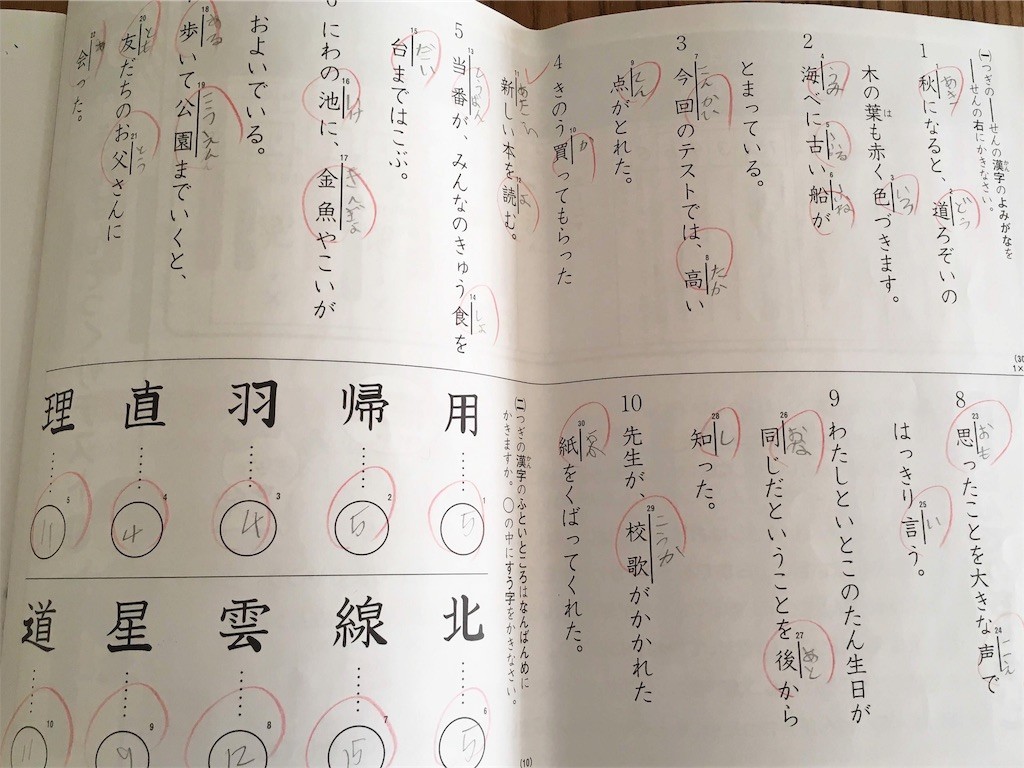 (一)つぎの――せんの漢字のよみがなを
――せんの右にかきなさい。
かん
1 秋になると、道ろぞいの
1 あき 2 どう
木の葉も赤く色づきます。
は
3 いろ
2 海べに古い船が
4 うみ 5 ふる 6 ふね
とまっている。
3 今回のテストでは、高い
7 こんかい 8 たか
点がとれた。
9 てん
4 きのう買ってもらった
10 か
新しい本を読む。
11 あたら 12 よ
5 当番が、みんなのきゅう食を
13 とうばん 14 しょ
台まではこぶ。
15 だい
6 にわの池に、金魚やこいが
16 いけ 17 きんぎょ
およいでいる。
歩いて公園までいくと、
18 ある 19 こうえん
友だちのお父さんに
20 とも 21 とう
会った。
22 あ
(30)
1×
8 思ったことを大きな声で
23 おも 24 こえ
はっきり言う。
25 い
9 わたしといとこのたん生日が
同じだということを後から
26 おな 27 あと
知った。
28 し
10 先生が、校歌がかかれた
29 こうか
紙をくばってくれた。
30 かみ
(二)つぎの漢字のふといところはなんばんめに
かん
かきますか。○の中にすう字をかきなさい。
(10)
用……1 5
帰……2 5
羽……3 4
直……4 4
理……5 11
北……6 5
線……7 15
雲……8 12
星……9 9
道……10 11